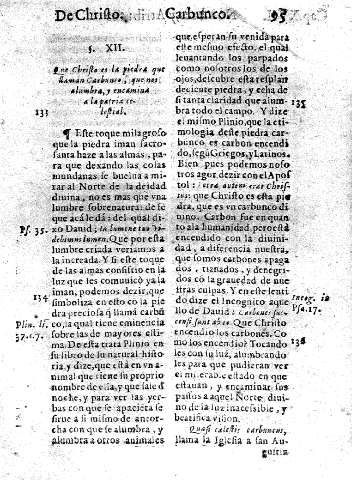 De Christo. Carbunco. 95
§. XII.
Que Christo es la piedra que
llaman Carbunco, que nos
alumbra, y encamina
a la patria ce-
lestial.
133
¶ Este toque milagroso
que la piedra iman sacro-
santa haze a las almas, pa-
ra que dexando las colas
mundanas se buelua a mi-
rar al Norte de la deidad
diuina, no es mas que vna
lumbre sobenatura de se
que acà le dà: del qual di-
xo Dauid; In lumine tuo vi-
Ps. 35.
debimus lumen. Que por esta
lumbre criada veriamos à
la increada. Y si este toque
de las almas consistio en la
luz que les comunicò ya la
iman, podemos dezir, que
134
simboliza en esto cō la pie
dra preciosa q̄ llamā carbū
co, la qual tiene eminencia
Plin. li.
sobre las de mayor esti-
37.c.7.
ma. De esta trata Plinio en
su libro de su natural histo-
ria, y dize, que està en vn a-
nimal que tiene su proprio
nombre de ella, y que sale d̄
noche, y para ver las yer-
bas con que se apacieta se
sirue a si mismo de antor-
cha con que se alumbra, y
alumbra a otros animales
que esperan su venida para
este mesmo efecto, el qual
leuantando los parpados
como nosotros los de los
ojos, descubre esta resplan
deciente piedra, y echa de
si tanta claridad que alum-
135
bra todo el campo. Y dize
el mismo Plinio, que la eti-
mologia deste piedra car-
bunco es carbon encendi-
do, segū Griegos, y Latinos.
Bien que podemos noso-
tros agur dezir con el Apos
tol: Petra autem erat Chris-
tus: que Christo es esta pie
dra, que es vn carbunco di-
uino. Carbon fue en quan-
to a la humanidad pero està
encendido con la diuini-
dad, a diferencia nuestra,
que somos carbones apaga
dos, tiznados, y denegri-
dos cō la grauedad de nue-
stras culpas. Y en este senti
do dize el Incognito aque
Incog. in
llo de Dauid: Carbones suc-
Psa. 17.
censi sunt ab eo. Que Christo
encendio los carbones. Co
136
mo los encendio? Tocando
les con su luz, alumbrando
les para que pudieran ver
el miserable estado en que
estauan, y encaminar sus
passos a aquel Norte diui-
no de la luz inaccesible, y
beatifica vision.
Quasi celestis carbuncus,
llama la Iglesia a san Au-
gustin